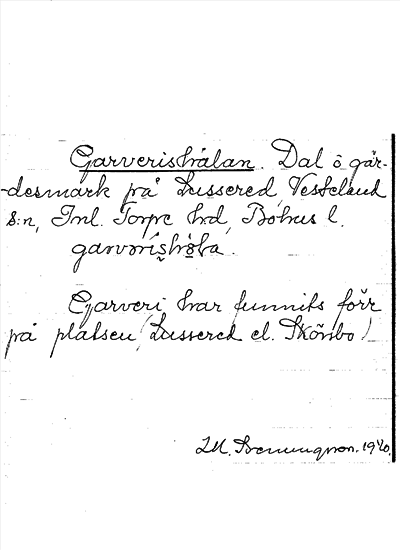 Garverishålan. Dal o gär-
-desmark på Lussered, Vesseland
s:n, Inl. Torpe hrd, Bohus l.
garvəris̬hɷ̀la.
Garveri har funnits förr
på platsen (Lussered el. Skörsbo)
1940.